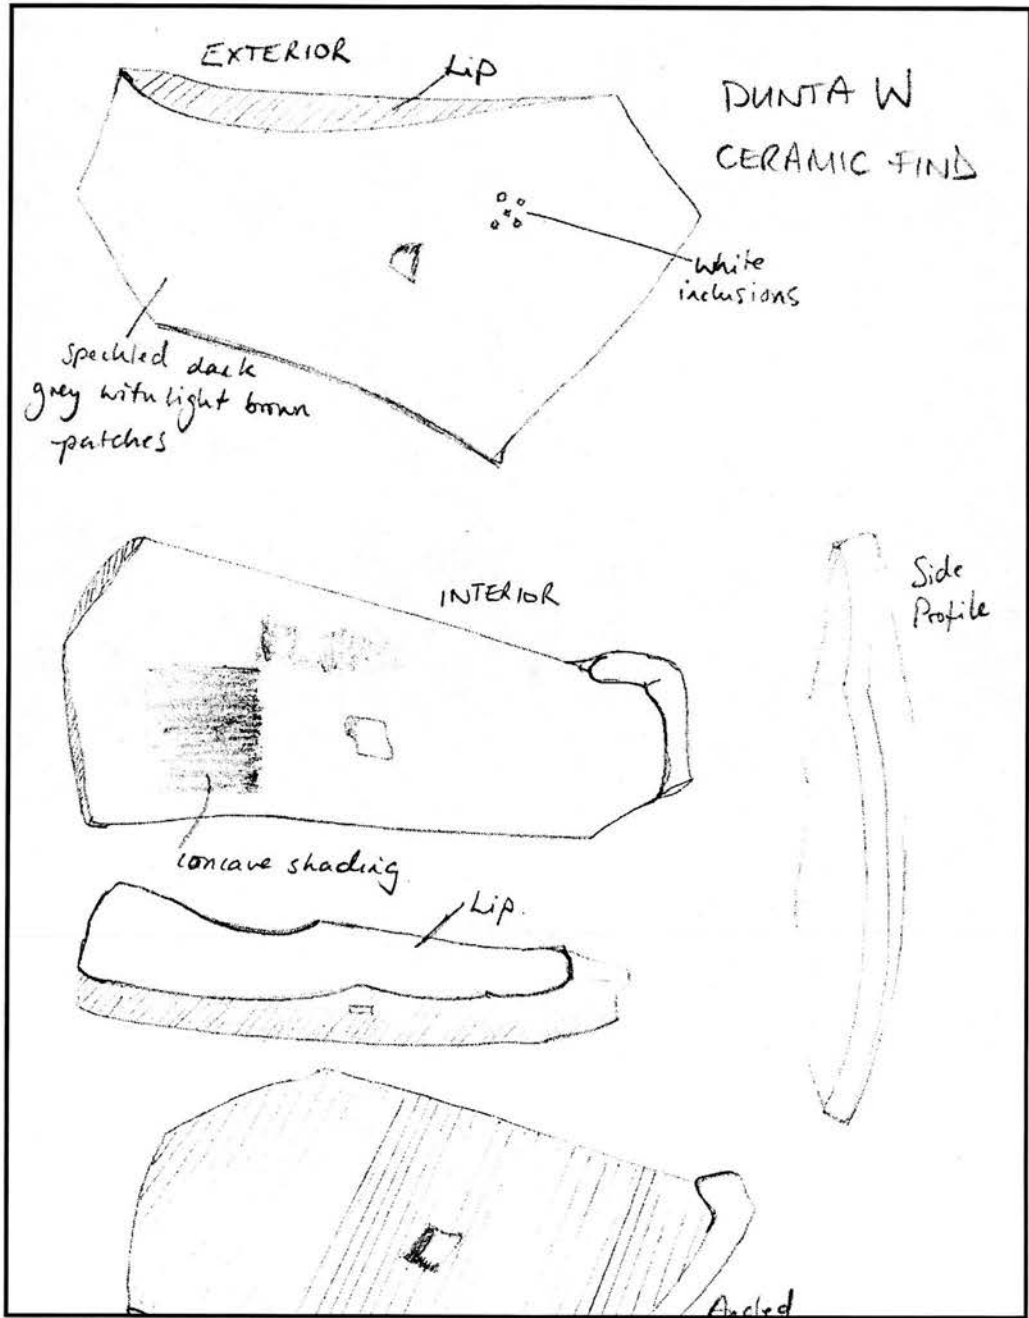 EXTERIOR
Lip
DUNTA W
CERAMIC FIND
white
inclusions
speckled dark
grey with light brown
patches
INTERIOR
Side
Profile
concave shading
Lip.
Angled